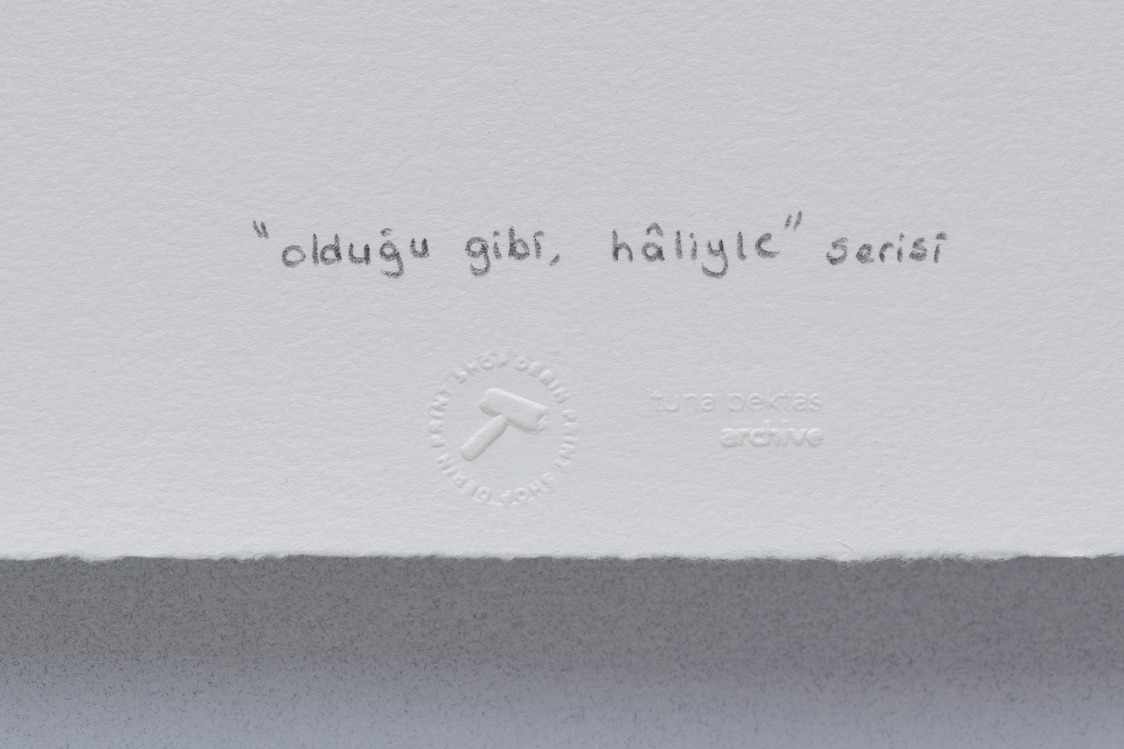 "olduğu gibi, hâliyle" serisi
PRINT SHOP DERIN PRINT SHOP DERIN
tuna pektas
archive